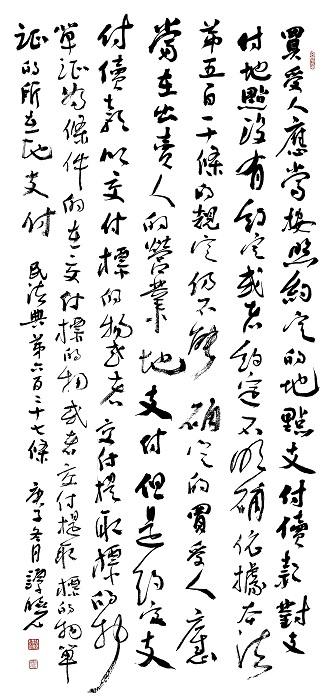 買受人應當按照約定的地點支付價款對支
付地點沒有約定或者約定不明確依據本法
第五百一十條的規定仍不能確定的買受人應
當在出賣人的營業地支付但是約定支
付價款以交付標的物或者交付提取標的物
單証為條件的在交付標的物或者交付提取標的物單
証的所在地支付
民法典第六百二十七條 庚子冬月譚